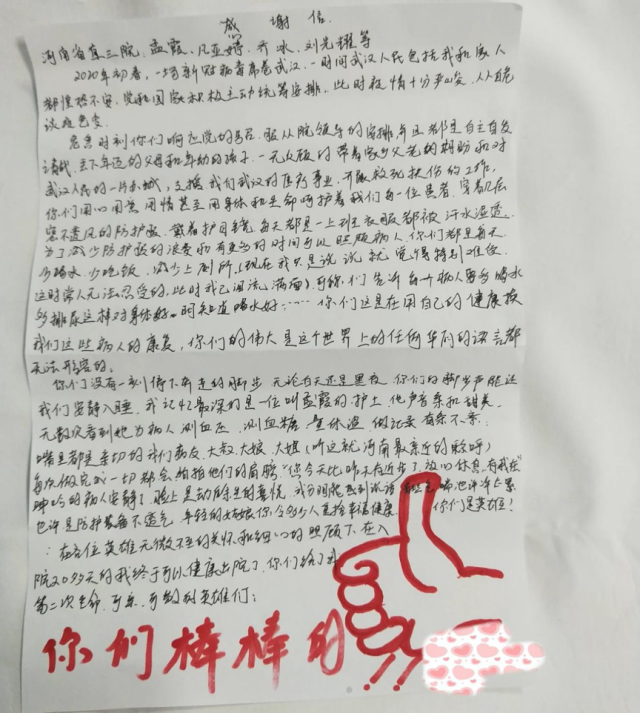 感谢信
河南省直三院：孟霞、凡亚婷、乔冰、刘光耀等
2020年初春，一场新冠病毒席卷武汉，一时间武汉人民包括我和家人
都惶恐不安，党和国家积极主动统筹安排，此时疫情十分严峻，人人自危
谈疫色变
危急时刻你们响应院的号召，服从院领导的安排，并且都是自主自发
请战，丢下年迈的父母和年幼的孩子，一无反顾的带着家乡父老的期盼和对
武汉人民的一片赤诚，支援我们武汉的医疗事业，开展救死扶伤的工作，
你们用心用爱用情甚至用身体和生命呵护着我们每一位患者，穿着几层
密不透风的防护服，戴着护目镜，每天都是一上班衣服都被汗水湿透，
为了减少防护服的浪费和有更多的时间可以照顾病人，你们都是每天
少喝水，少吃饭，减少上厕所，（现在我只是说说就觉得特别难受
这时常人无法忍受的，此时我已泪流满面）可你们告诉每个病人要多喝水
多排尿这样对身体好。明知道喝水好……你们这是在用自己的健康换
我们这些病人的康复，你们的伟大是这个世界上的任何华丽的语言都
无法形容的。
你们没有一刻停下奔走的脚步，无论白天还是黑夜，你们的脚步声能让
我们安静入睡，我记忆最深的是一位叫孟霞的护士，他声音柔和甜美，
无数次看到她为病人测血压，测血糖，量体温，做记录，有条不紊，
嘴里都是亲切的我们病友，大叔大娘，大姐（听这就河南最亲近的称呼）
每次做完这一切都会轻拍他们的肩膀“你今天比昨天有进步了，放心休息，有我在”
呻吟的病人安静了，脸上是劫后余生的喜悦，
也许是防护装备不透气，年轻的姑娘你令多少人直接幸福健康，你们是英雄！
：在各位英雄无微不至的关怀和细心的照顾下，在入
院20多天的我终于可以健康出院了，你们给了我
第二次生命，可亲，可敬的英雄们：
你们棒棒的!!